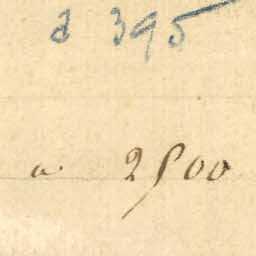 a 395
a. 2500